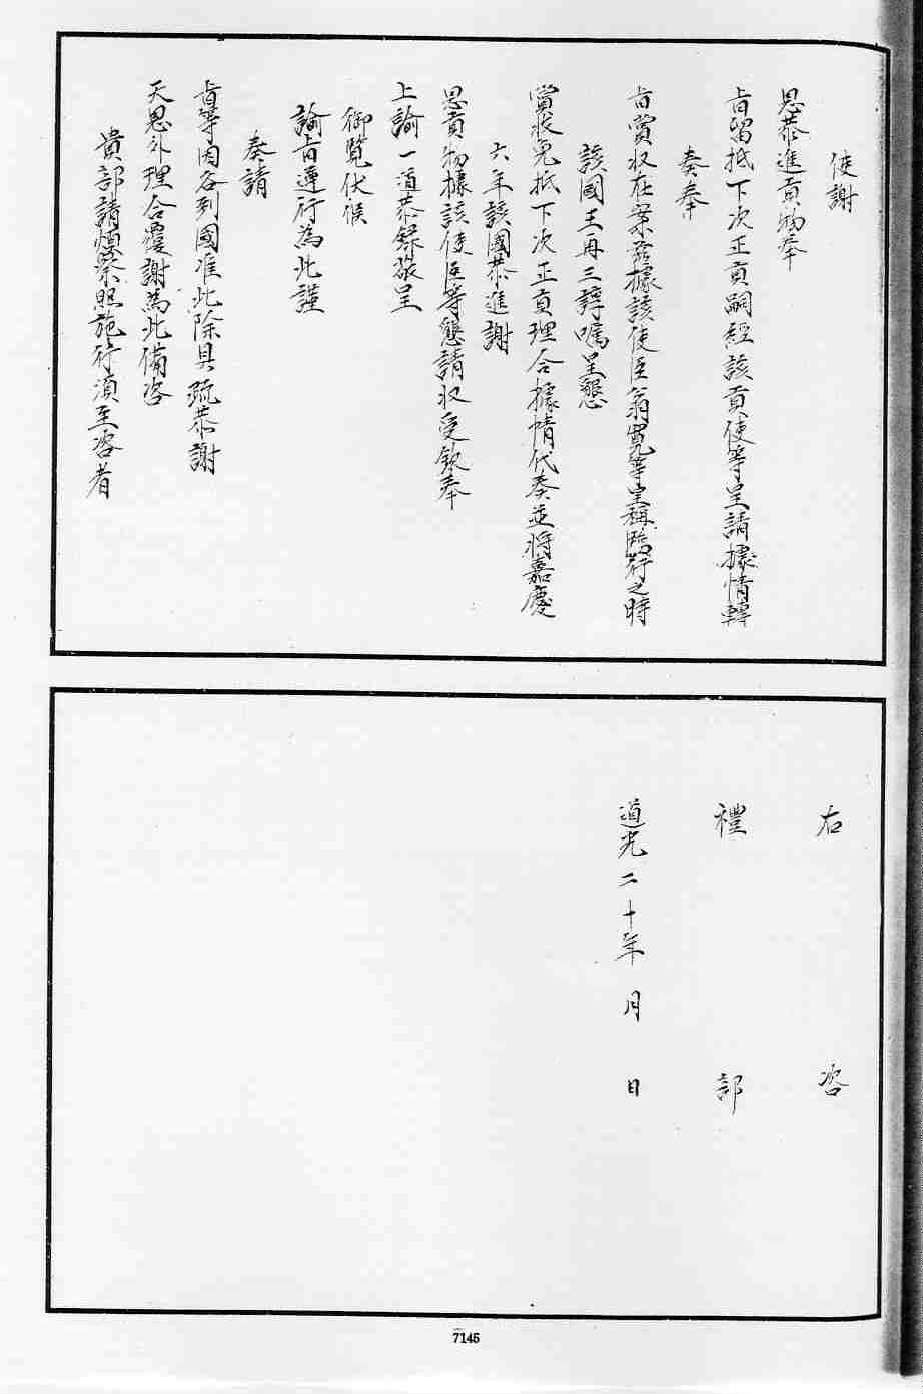 使謝
恩恭進貢物奉
旨留抵下次正貢嗣經該貢使等呈請據情轉
奏奉
旨賞收在案茲據該使臣翁寬等呈稱臨行之時
該國王再三諄囑呈懇
賞收免抵下次正貢理合據情代奏並將嘉慶
六年該國恭進謝
恩貢物據該使臣等懇請收受欽奉
上諭一道恭錄敬呈
御覽伏候
諭旨遵行為此謹
奏請
旨等因咨到國准此除具疏恭謝
天恩外理合覆謝為此備咨
貴部請煩察照施行須至咨者
右咨
禮部
道光二十年月日
7145